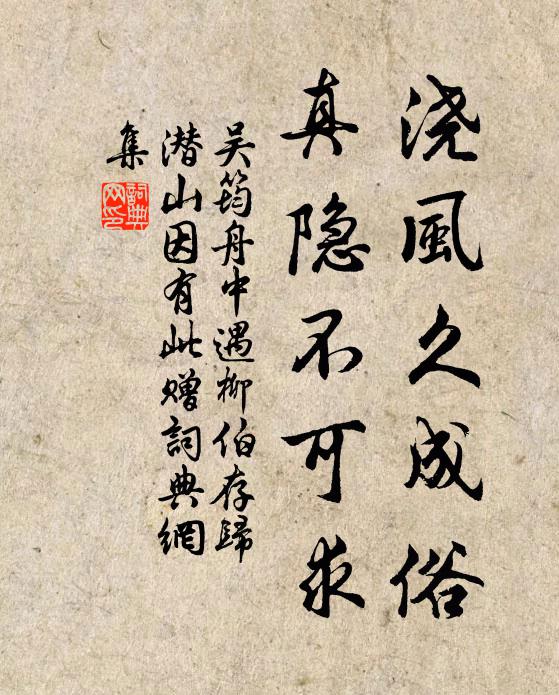 浇風久成俗
真隐不可求
吴筠舟中遇柳伯存歸
潜山因有此赠詞典網
集
詞典
网印